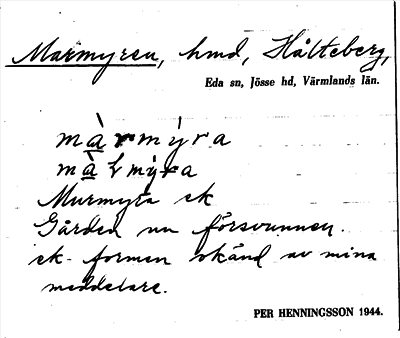 Marmyren, hmd, Hålteberg,
Eda sn, Jösse hd, Värmlands län.
màrmýra
màlmýra
Murmyra ek
Gården nu försvunnen.
ek-formen okänd av mina
meddelare.
PER HENNINGSSON 1944.